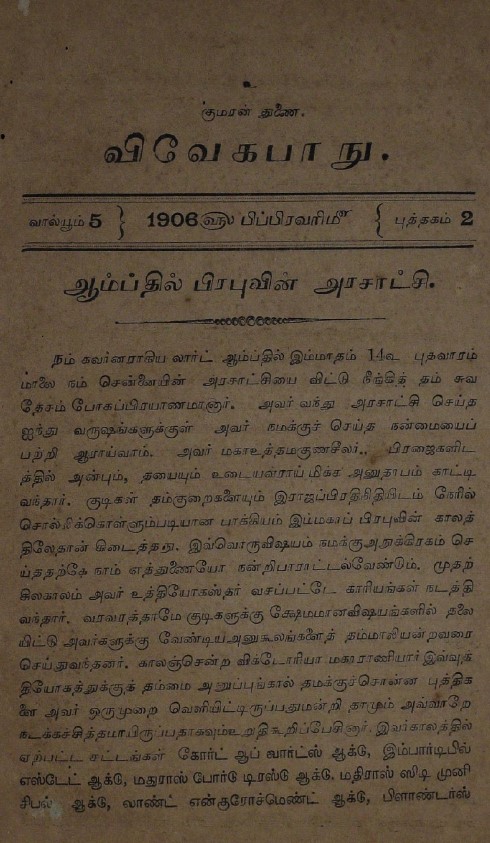 உ
குமரன் துணை.
விவேகபாநு.
வால்யூம் 5 } 1906 ௵ பிப்பிரவரி௴ { புத்தகம் 2
ஆம்ப்தில் பிரபுவின் அரசாட்சி.
நம் கவர்னராகிய லார்ட் ஆம்ப்தில் இம்மாதம் 14௳ புதவாரம்
மாலை நம் சென்னையின் அரசாட்சியை விட்டு நீங்கித் தம் சுவ
தேசம் போகப்பிரயாணமானார். அவர் வந்து அரசாட்சி செய்த
ஐந்து வருஷங்களுக்குள் அவர் நமக்குச் செய்த நன்மையைப்
பற்றி ஆராய்வாம். அவர் மகாஉத்தமகுணசீலர். பிரஜைகளிட
த்தில் அன்பும், தயையும் உடையவராய் மிக்க அனுதாபம் காட்டி
வந்தார். குடிகள் தம்குறைகளையும் இராஜப்பிரதிநிதியிடம் நேரில்
சொல்லிக்கொள்ளும்படியான பாக்கியம் இம்மகாப் பிரபுவின் காலத்
திலேதான் கிடைத்தது. இவ்வொருவிஷயம் நமக்குஅநுக்கிரகம் செ
ய்ததற்கே நாம் எத்துணையோ நன்றிபாராட்டல்வேண்டும். முதற்
சிலகாலம் அவர் உத்தியோகஸ்தர் வசப்பட்டே காரியங்கள் நடத்தி
வந்தார். வரவரத்தாமே குடிகளுக்கு க்ஷேமமானவிஷயங்களில் தலை
யிட்டு அவர்களுக்கு வேண்டியஅனுகூலங்களைத் தம்மாலியன்றவரை
செய்துவந்தனர். காலஞ்சென்ற விக்டோரியா மகாராணியார் இவ்வுத்
தியோகத்துக்குத் தம்மை அனுப்புங்கால் தமக்குச்சொன்ன புத்திக
ளை அவர் ஒருமுறை வெளியிட்டிருப்பதுமன்றி தாமும் அவ்வாறே
நடக்கச்சித்தமாயிருப்பதாகவும்உறுதிகூறிப்பேசினார். இவர்காலத்தில்
ஏற்பட்ட சட்டங்கள் கோர்ட் ஆப் வார்ட்ஸ் ஆக்டு, இம்பார்டிபில்
எஸ்டேட் ஆக்டு, மதராஸ் போர்டு டிரஸ்டு ஆக்டு, மதிராஸ் ஸிடி முனி
சிபல் ஆக்டு, லாண்ட் என்குரோச்மெண்ட் ஆக்டு, பிளாண்டர்ஸ்